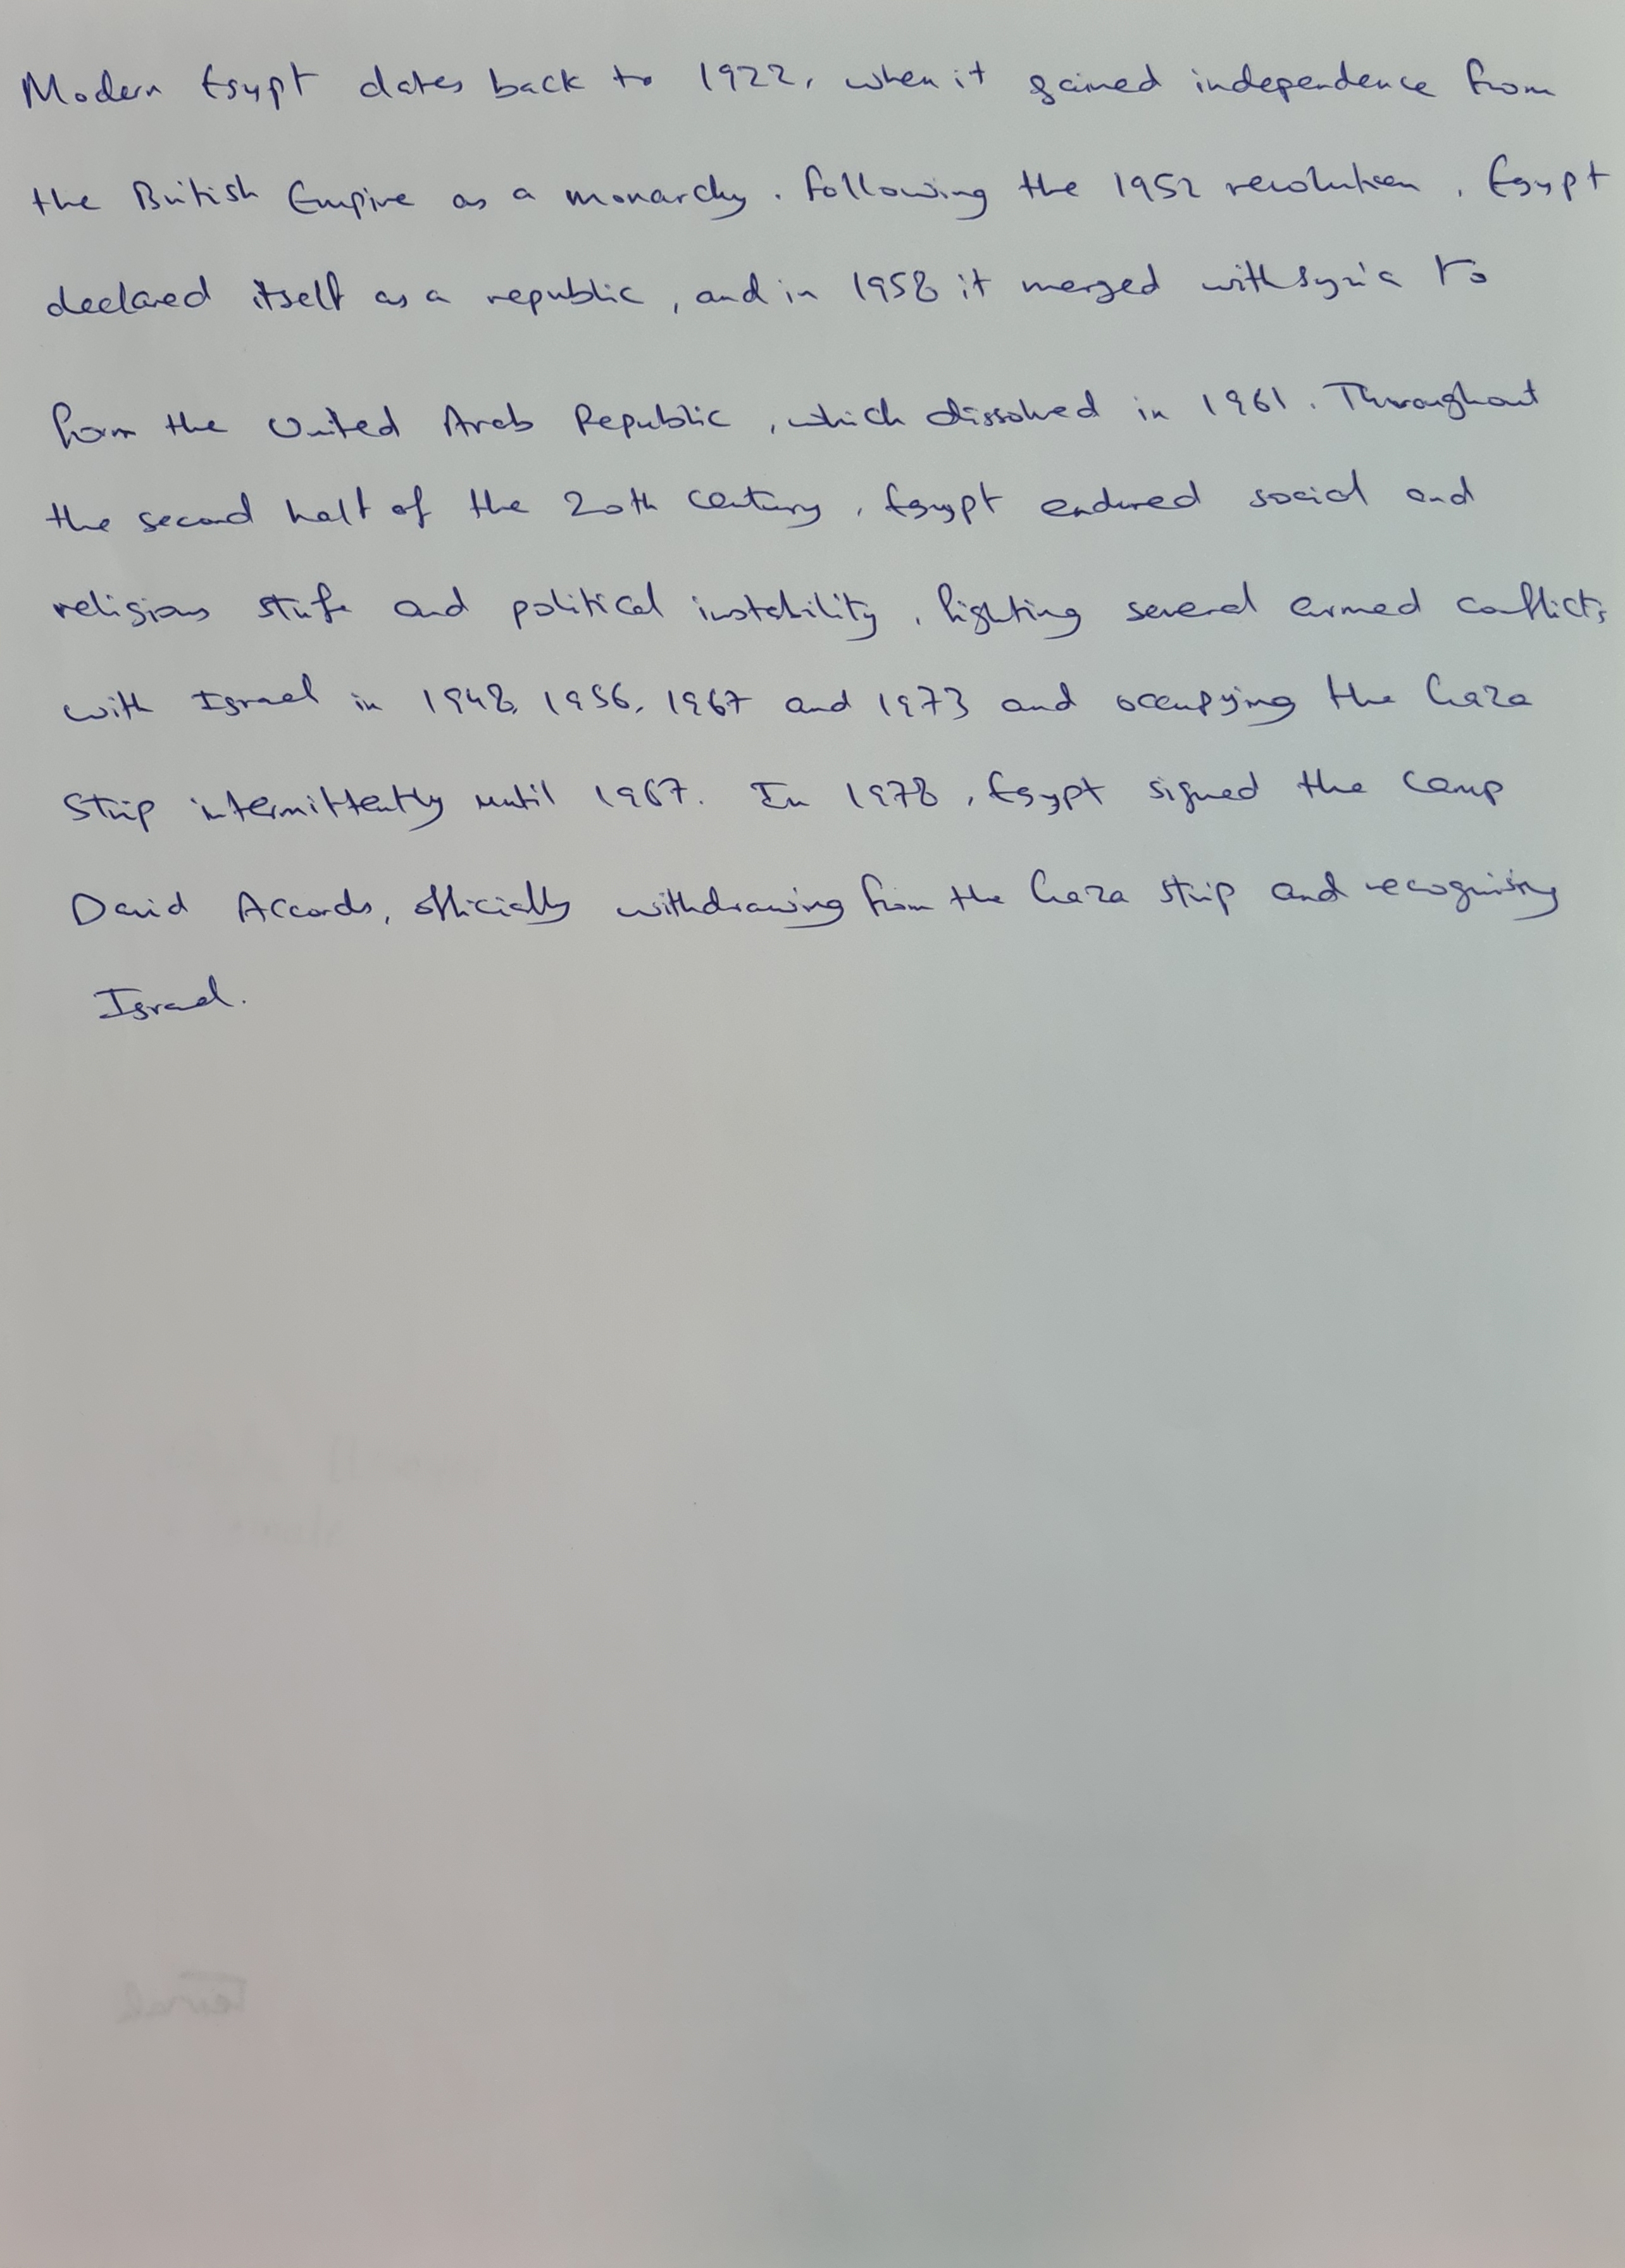 Modern Egypt dates back to 1922, when it gained independence from
the British Empire as a monarchy. Following the 1952 revolution, Egypt
declared itself as a republic, and in 1958 it merged with Syria to
form the United Arab Republic, which dissolved in 1961. Throughout
the second half of the 20th century, Egypt endured social and
religious strife and political instability, fighting several armed conflicts
with Israel in 1948, 1956, 1967 and 1973 and occupying the Gaza
Strip intermittently until 1967. In 1978, Egypt signed the Camp
David Accords, officially withdrawing from the Gaza strip and recognising
Israel.